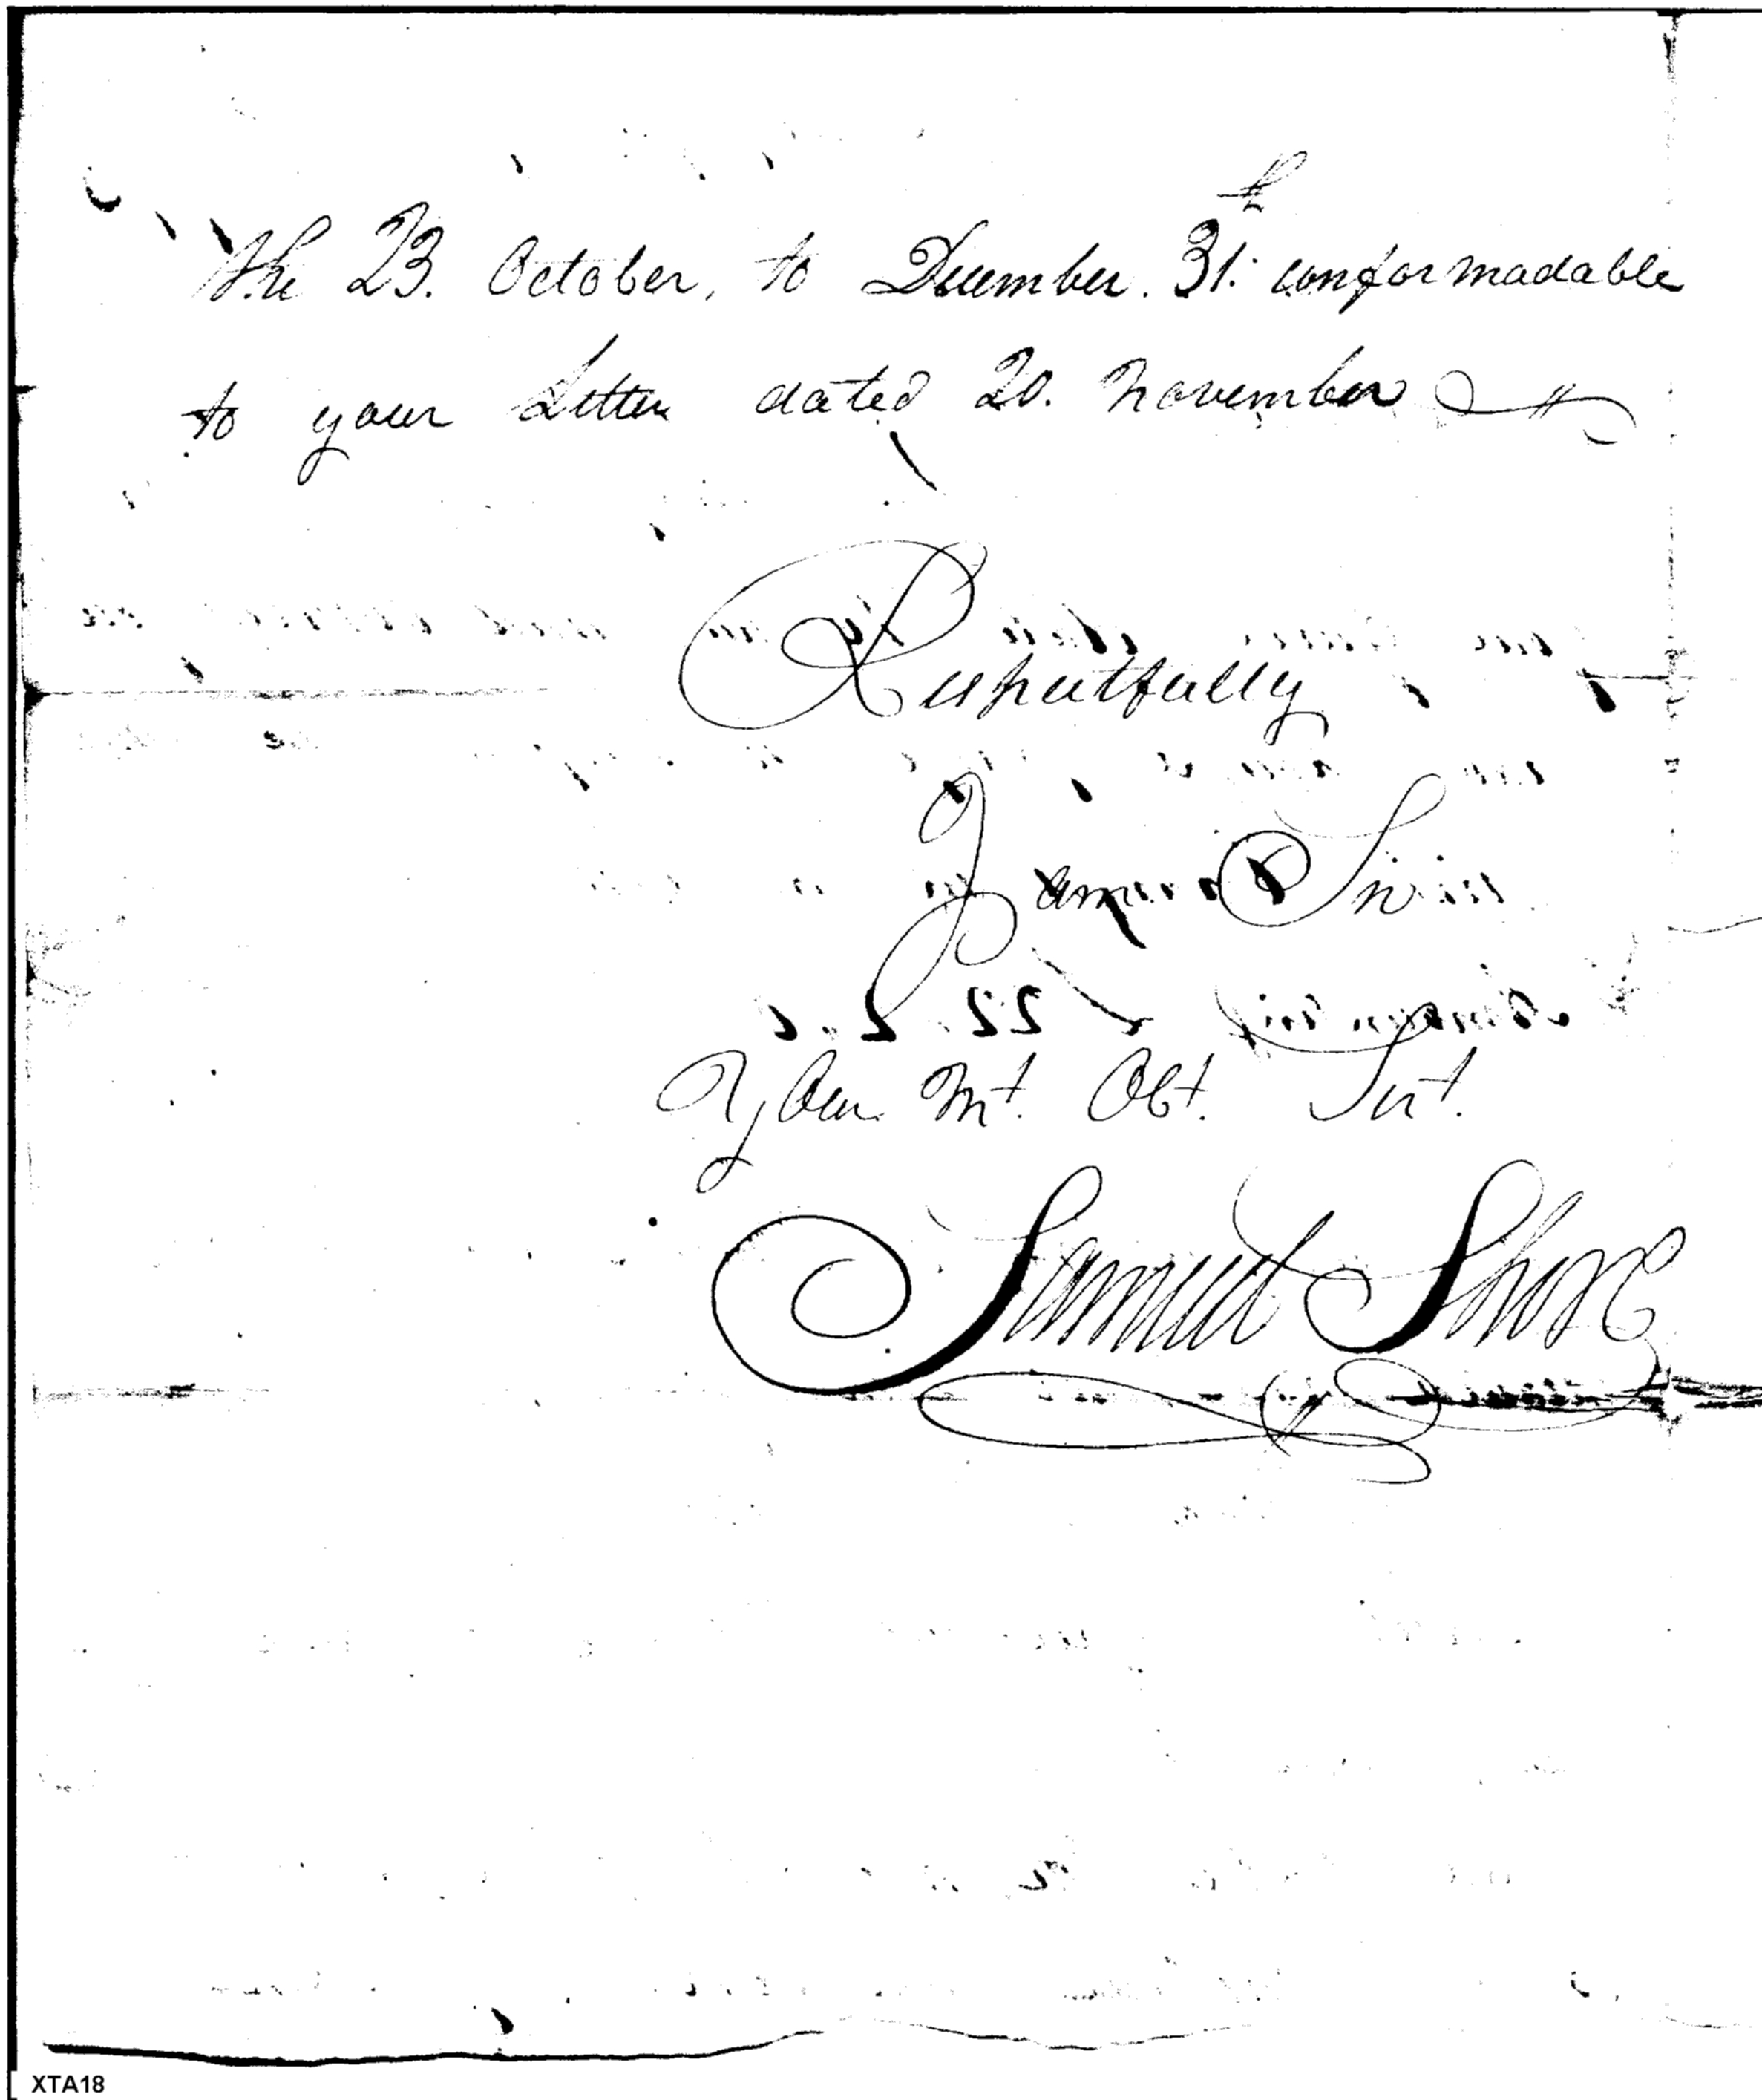 the 23. October, to December. 31.th conformadable
to your Letter dated 20. November
Respectfully
I am Sir
Your Mt. Obt. Sert.
Samuel Shore
XTA18